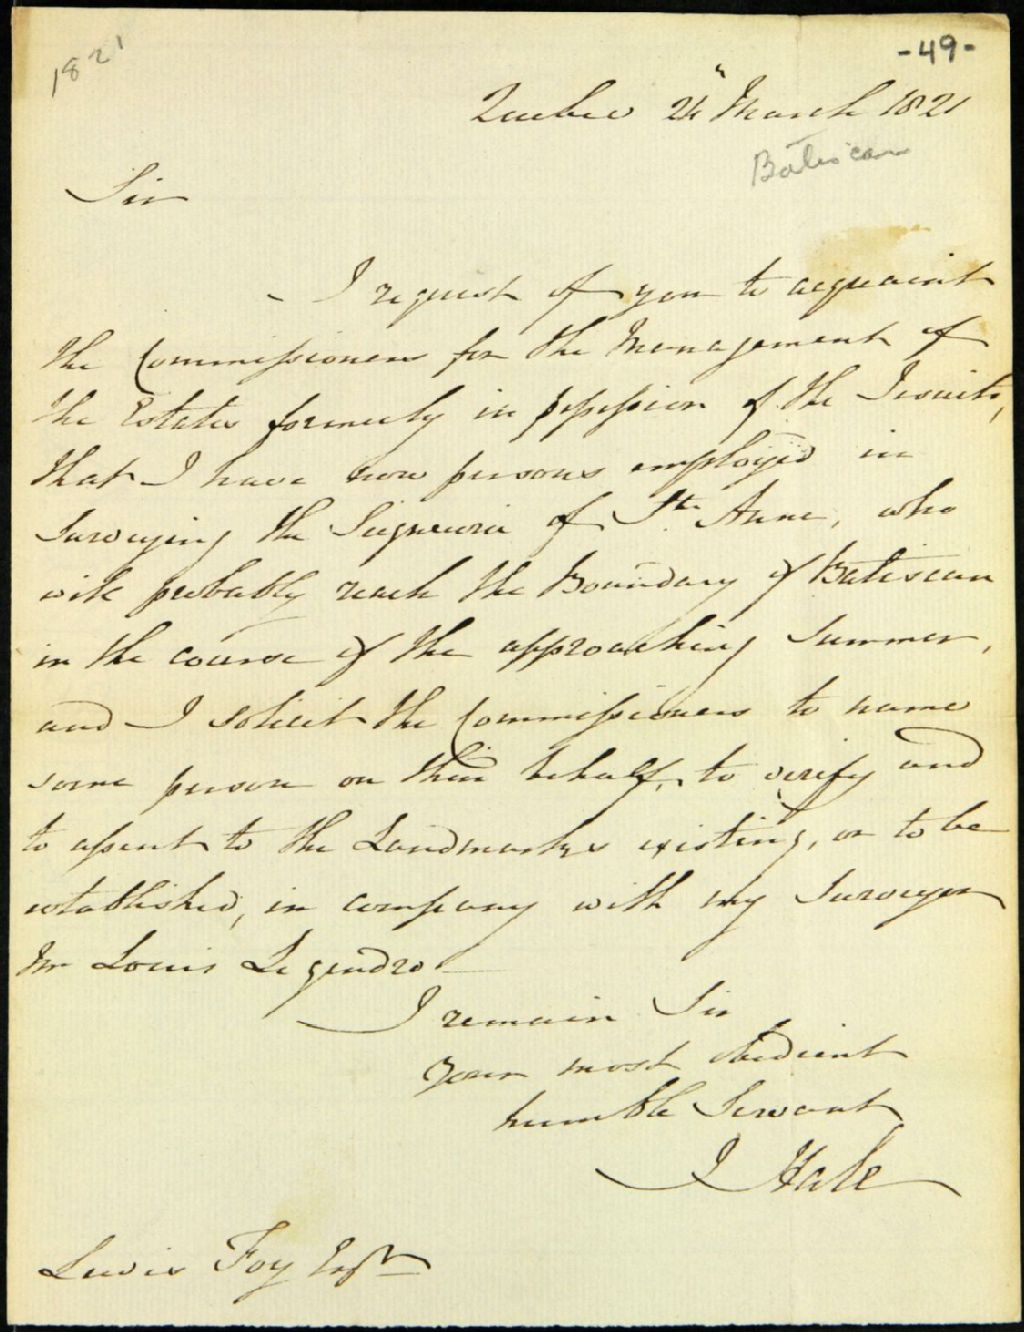 1821
-49-
Quebec 24 March 1821
Batiscan
Sir
I request of you to acquaint
the Commissioners for the Management of
the Estates formerly in possession of the Jesuits,
that I have now persons employed in
surveying the Seigneurie of Ste Anne, who
will probably reach the Boundary of Batiscan
in the course of the approaching Summer,
and I solicit the Commissioners to name
some person on their behalf, to verify and
to assent to the Landmarks existing, or to be
established, in company with my Surveyor
Mr Louis Legendre
I remain Sir
Your most obedient
humble Servant
J Hale
Lewis Foy Esqr